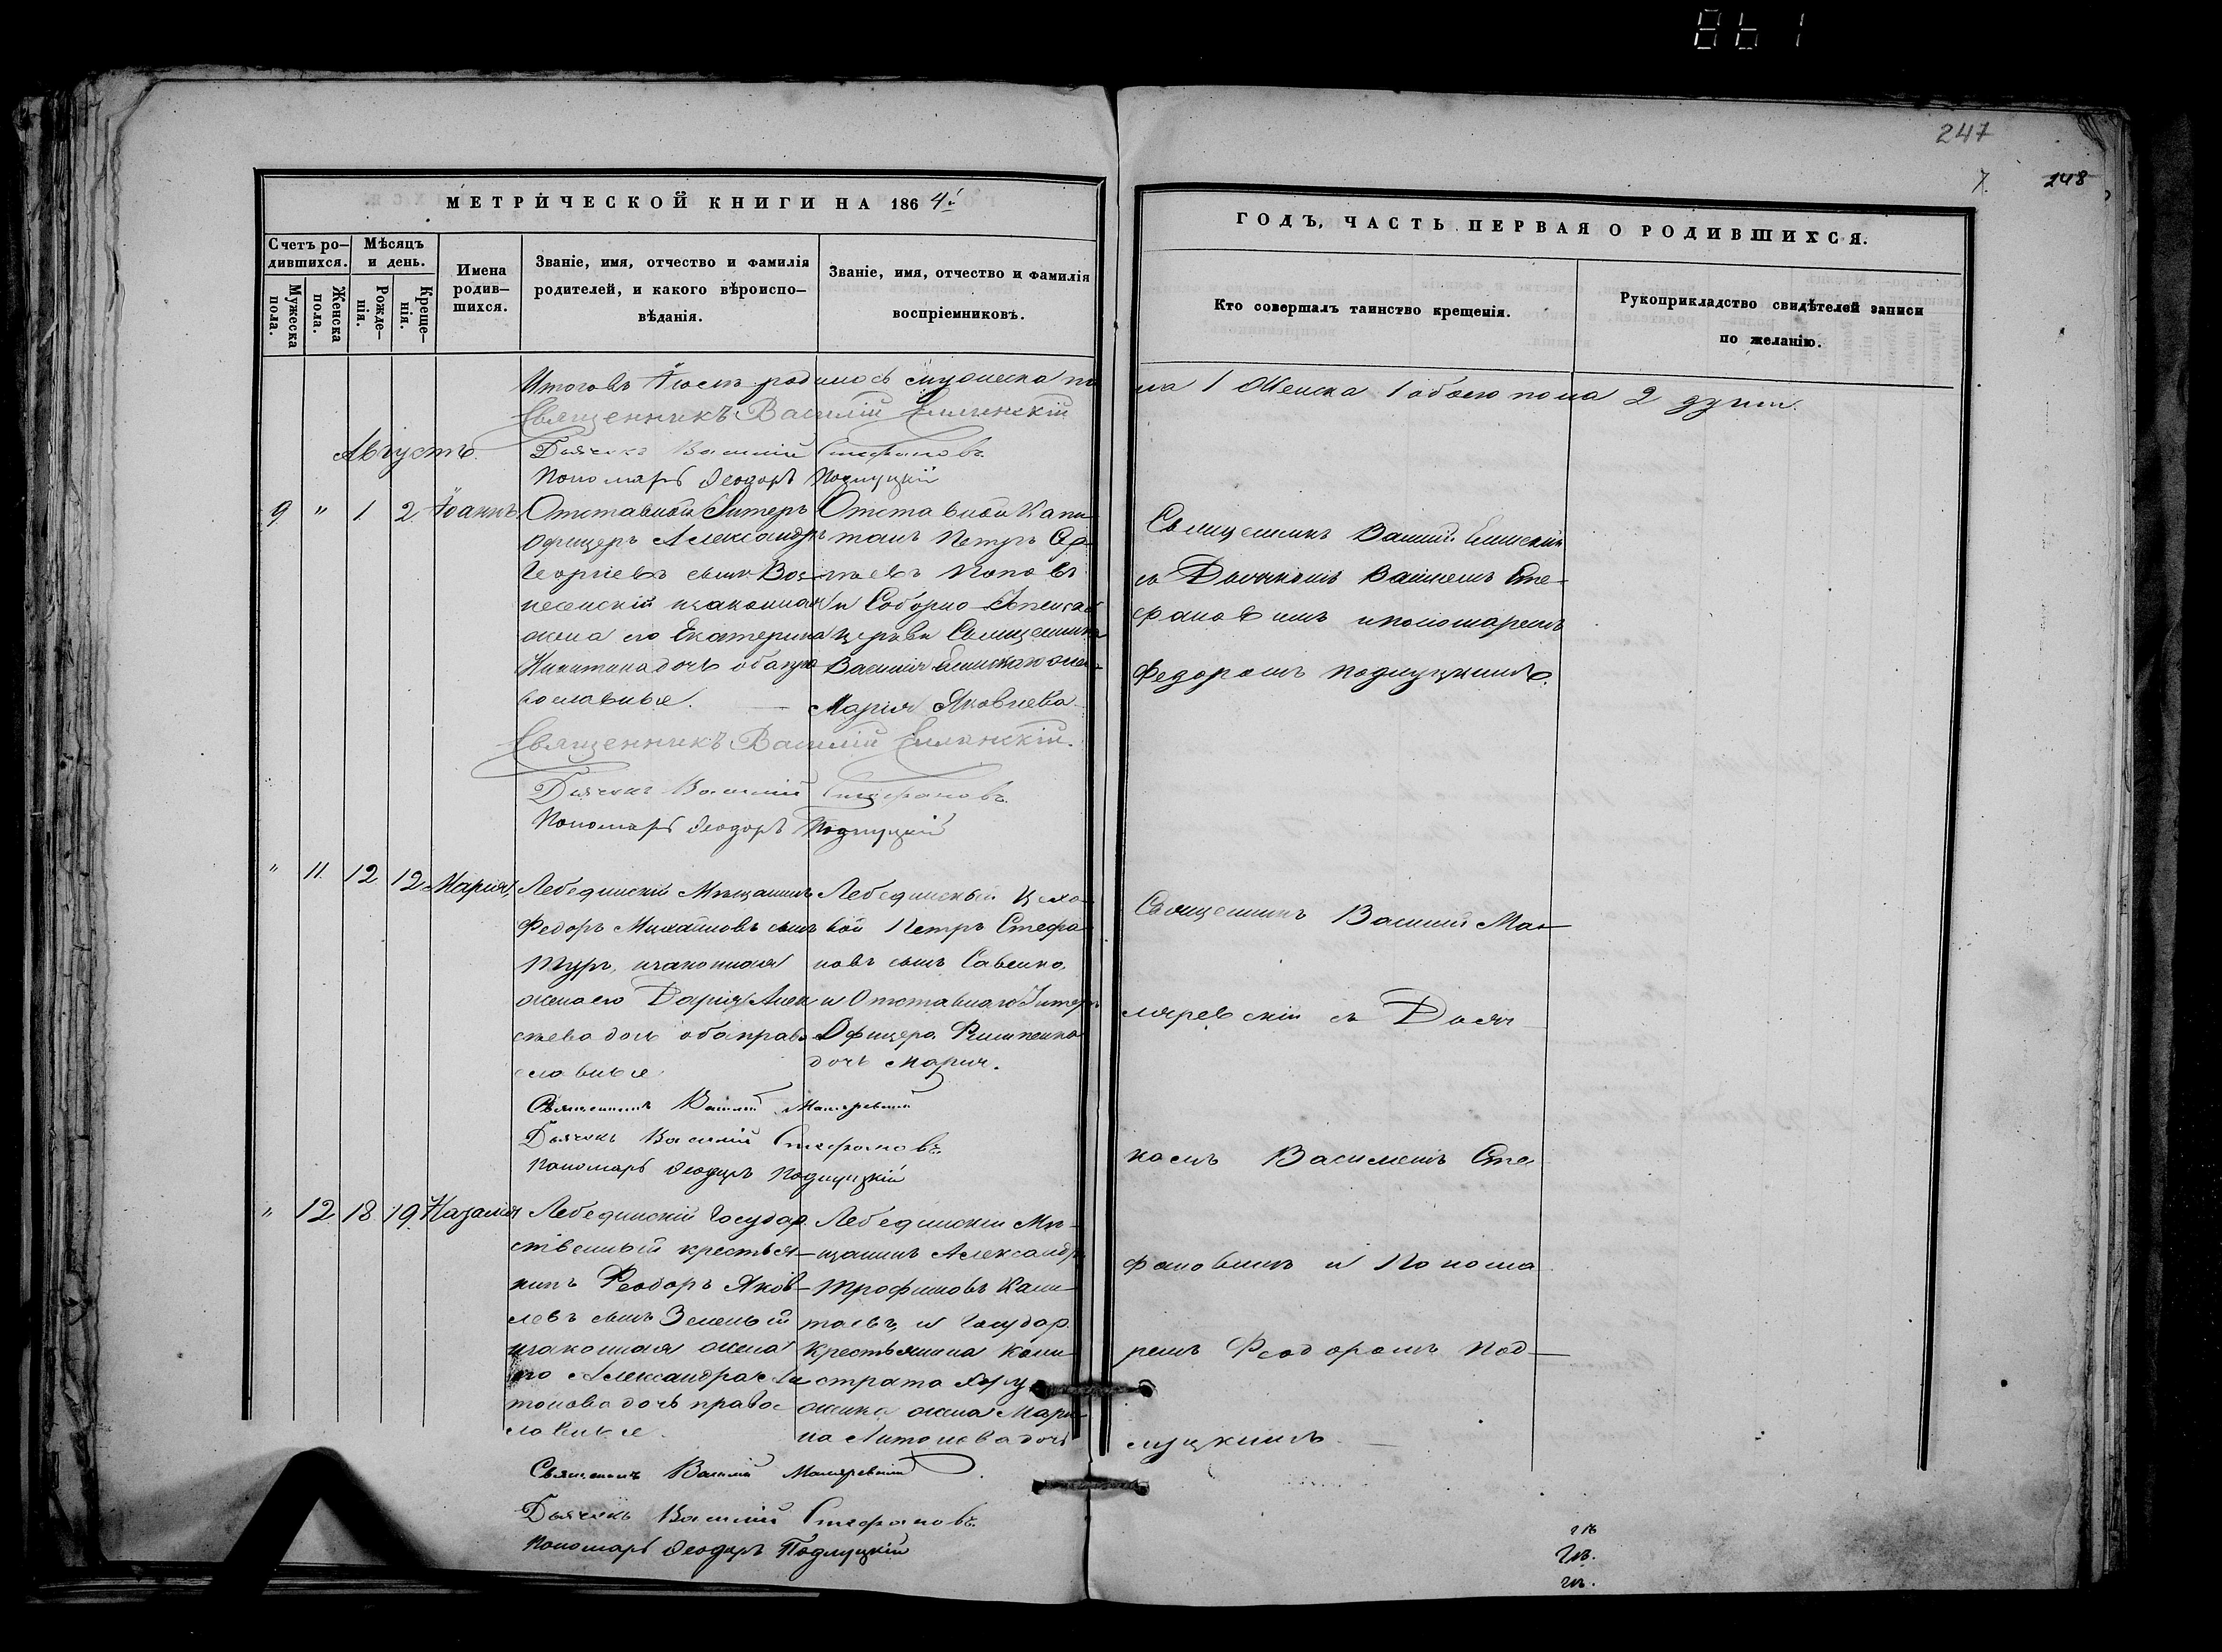 861
247
7.
248
МЕТРИЧЕСКОЙ КНИГИ НА 1864.
Счетъ ро-
дившихся.
Мужеска
пола.
Женска
пола.
Мѣсяцъ
и день.
Рожде-
нія.
Креще-
нія.
Имена
родив-
шихся.
Званіе, имя, отчество и фамилія
родителей, и какого вѣроиспо-
вѣданія.
Званіе, имя, отчество и фамилія
воспріемниковъ.
ГОДЪ, ЧАСТЬ ПЕРВАЯ О РОДИВШИХСЯ.
Кто совершалъ таинство крещенія.
Рукоприкладство свидѣтелей записи
по желанію.
родилось мужеска по
ла 1 Женска 1 обоего пола 2 душ.
Священникъ Василій
Августъ.
Дьячекъ Василій Стефановъ.
Пономарь Ѳеодоръ Подлуцкій
9 " 1. 2. Іоаннъ
Отставной Унтеръ
Офицеръ Александръ
Георгіевъ сынъ Воз-
несенскій изаконная
жена его Екатерина
Никитина дочь оба пра
вославные.
Отставной Капи
танъ Петръ
Поповъ
и Соборно-Успенской
церкви Священника
Василія жена
Марія Яковлева
Священникъ Василій
съ Дьячкомъ Василіемъ Сте-
фановымъ ипономаремъ
Федоромъ Подлуцкимъ.
Священникъ Василій
Дьячекъ Василій Стефановъ.
Пономарь Ѳеодоръ Подлуцкій
" 11. 12 12 Марія,
Лебединскій Мѣщанинъ
Федоръ Михайловъ сынъ
Туръ, изаконная
жена его Дарія Алек
сѣева дочь оба право
славные
Лебединскій Цехо
вой Петръ Стефа
новъ сынъ Савенко,
и Отставнаго Унтеръ
Офицера
дочь Марія.
Священникъ Василій Мак
ляревскій съ Дьяч
комъ Василіемъ Сте
фановымъ и Понома
ремъ Ѳеодоромъ Под-
луцкимъ.
Священникъ Василій
Дьячекъ Василій Стефановъ.
Пономарь Ѳеодоръ Подлуцкій
" 12 18 19. Наталія
Лебединскій Государ
ственный крестья-
нинъ Ѳеодоръ Яков-
левъ сынъ Зеленый
изаконная жена
его Александра Ан
тонова дочь право
славные.
Лебединскій Мѣ-
щанинъ Александръ
Трофимовъ
и Государ.
Крестьянина Кали
страта
жена Мари
на Антонова дочь
Священникъ Василій
Дьячекъ Василій Стефановъ.
Пономарь Ѳеодоръ Подлуцкій